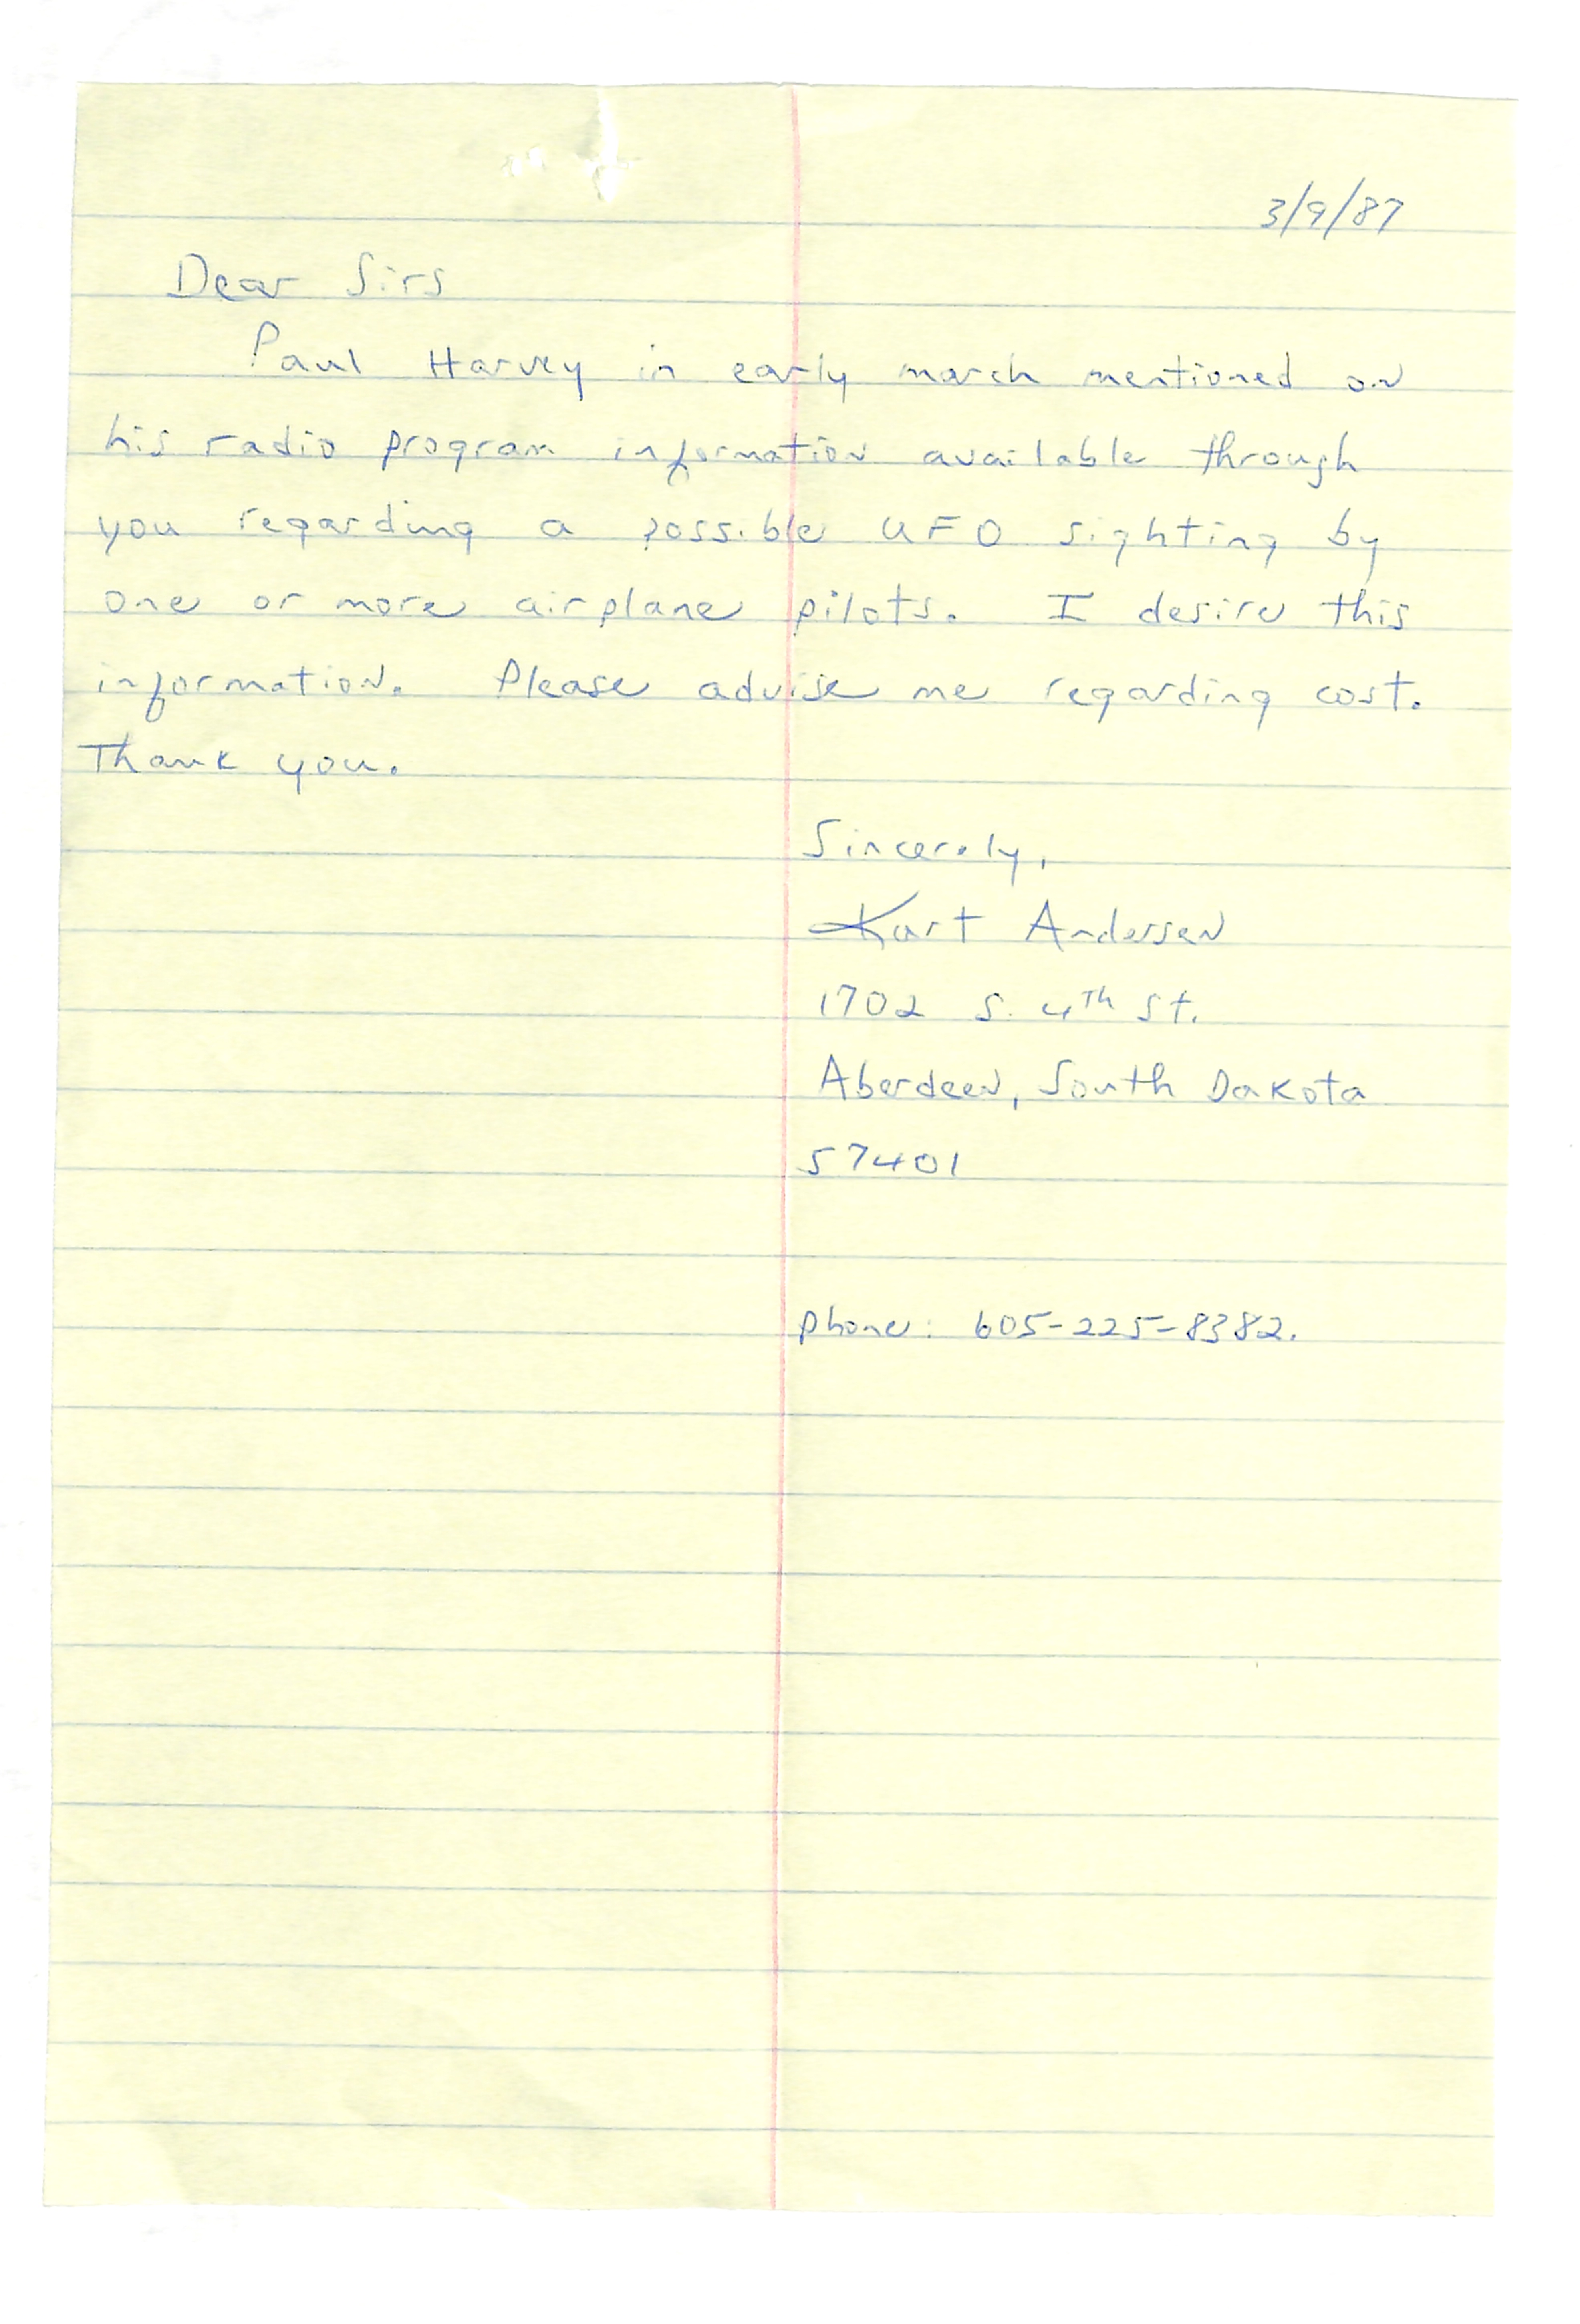 3/9/87
Dear Sirs
Paul Harvey in early march mentioned on
his radio program information available through
you regarding a possible UFO sighting by
one or more airplane pilots. I desire this
information. Please advise me regarding cost.
Thank you.
Sincerely,
Kurt Andersen
1702 S. 4th St.
Aberdeen, South Dakota
57401
phone: 605-225-8382.